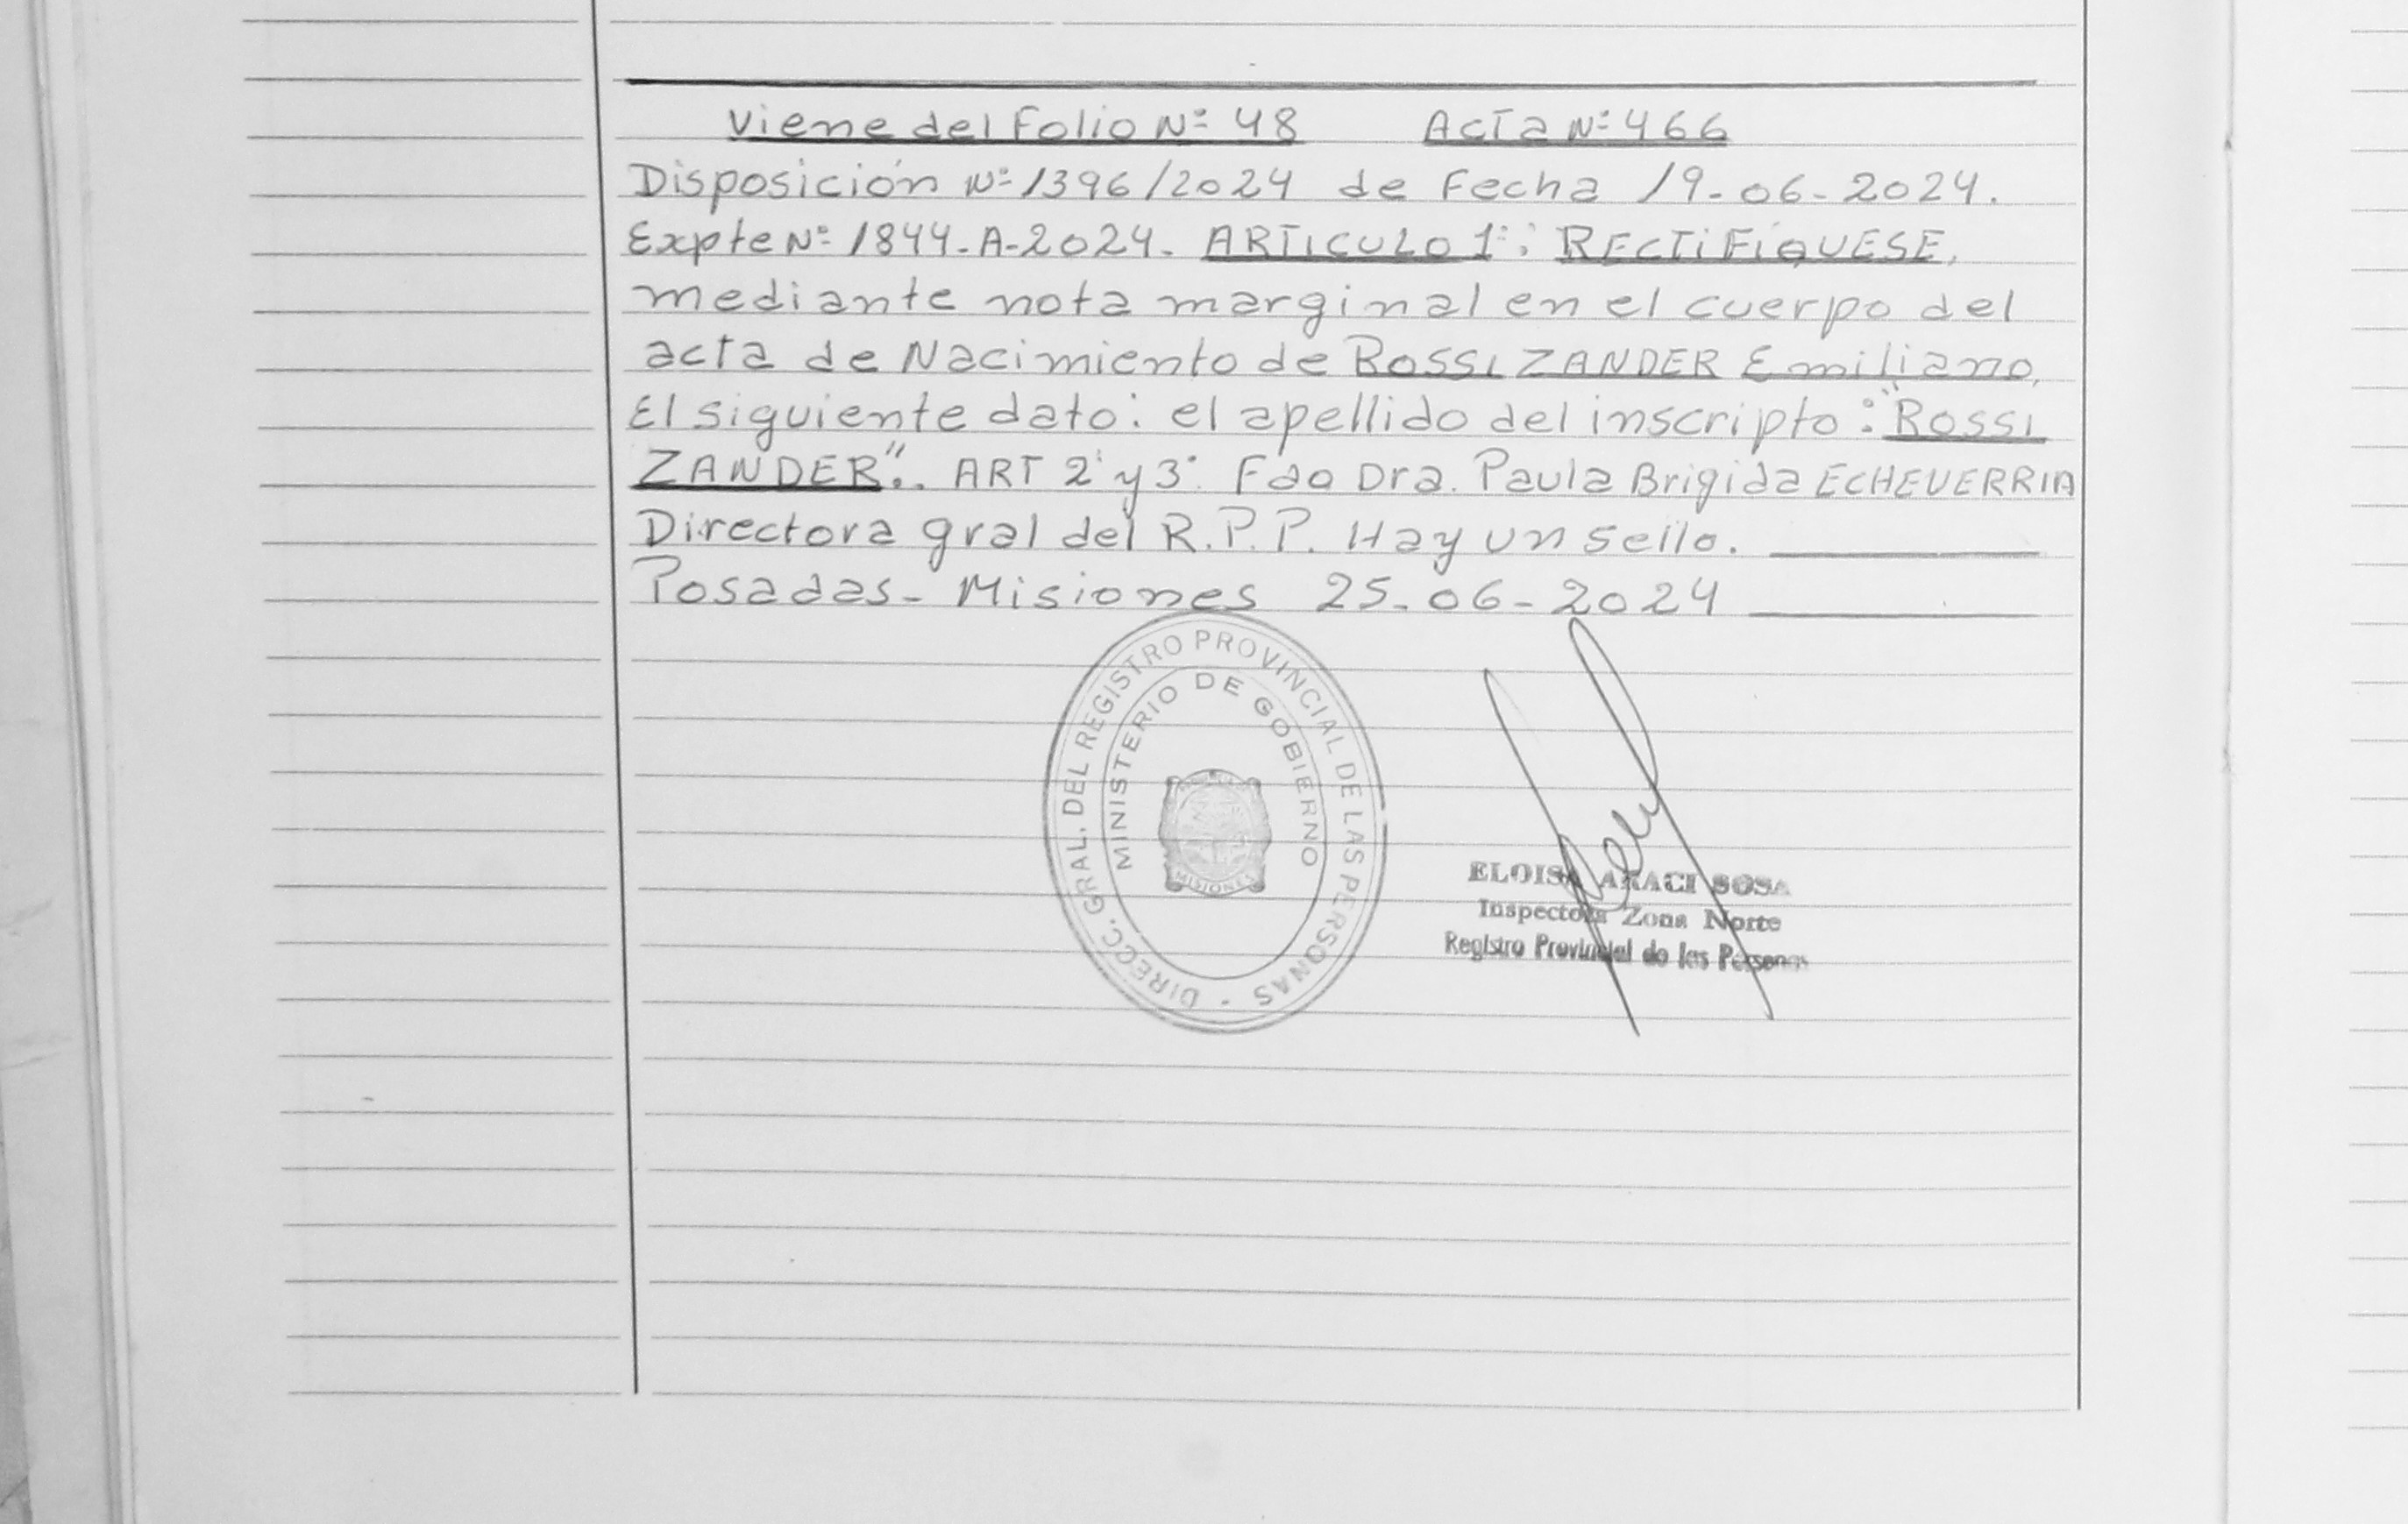 Viene del Folio Nº 48 Acta Nº 466
Disposición Nº 1396/2024 de Fecha 19-06-2024.
Expte Nº 1844-A-2024. ARTICULO 1º: RECTiFiQUESE,
mediante nota marginal en el cuerpo del
acta de Nacimiento de BOSSI ZANDER Emiliano,
El siguiente dato: el apellido del inscripto: "ROSSI
ZANDER". ART 2º y 3º Fdo Dra. Paula Brigida ECHEVERRIA
Directora gral del R.P.P. Hay un sello.
Posadas- Misiones 25-06-2024
DIRECC. GRAL. DEL REGISTRO PROVINCIAL DE LAS PERSONAS
MINISTERIO DE GOBIERNO
MISIONES
ELOISA ARACI SOSA
Inspectora Zona Norte
Registro Provincial de las Personas